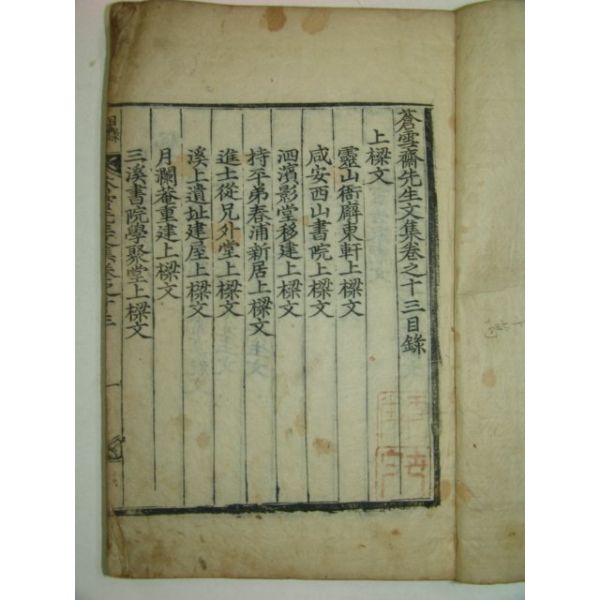 蒼雪齋先生文集卷之十三目錄
上樑文
靈山衙廨東軒上樑文
咸安西山書院上樑文
泗濱影堂移建上樑文
持平弟春浦新居上樑文
進士從兄外堂上樑文
溪上遺址建屋上樑文
月瀾菴重建上樑文
三溪書院學聚堂上樑文
目錄